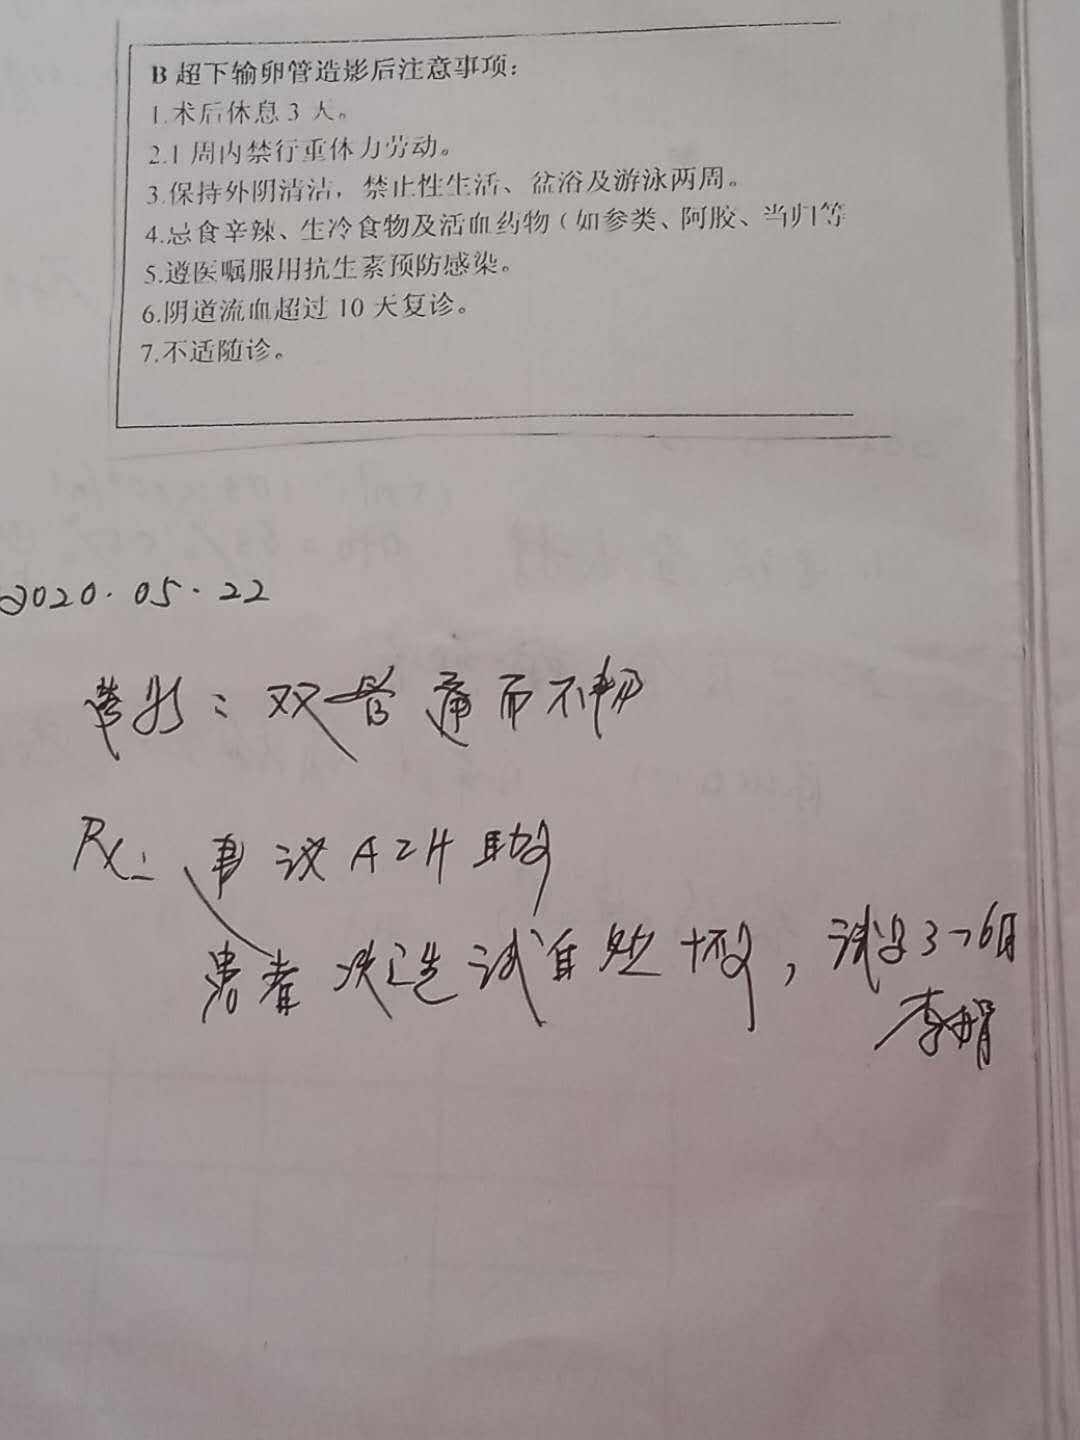 B 超下输卵管造影后注意事项：
1.术后休息 3 天。
2.1 周内禁行重体力劳动。
3.保持外阴清洁，禁止性生活、盆浴及游泳两周。
4.忌食辛辣、生冷食物及活血药物（如参类、阿胶、当归等
5.遵医嘱服用抗生素预防感染。
6.阴道流血超过 10 天复诊。
7.不适随诊。
2020.05.22
造影：双管通而不畅
Rx: 建议 助孕
患者决定试自然怀孕，试孕3-6月
李娟